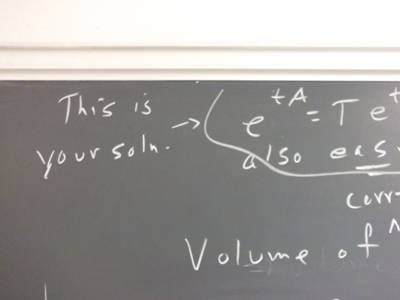 This is
your soln. →
e^{tA} = T e^{t
also eas
corr
Volume of